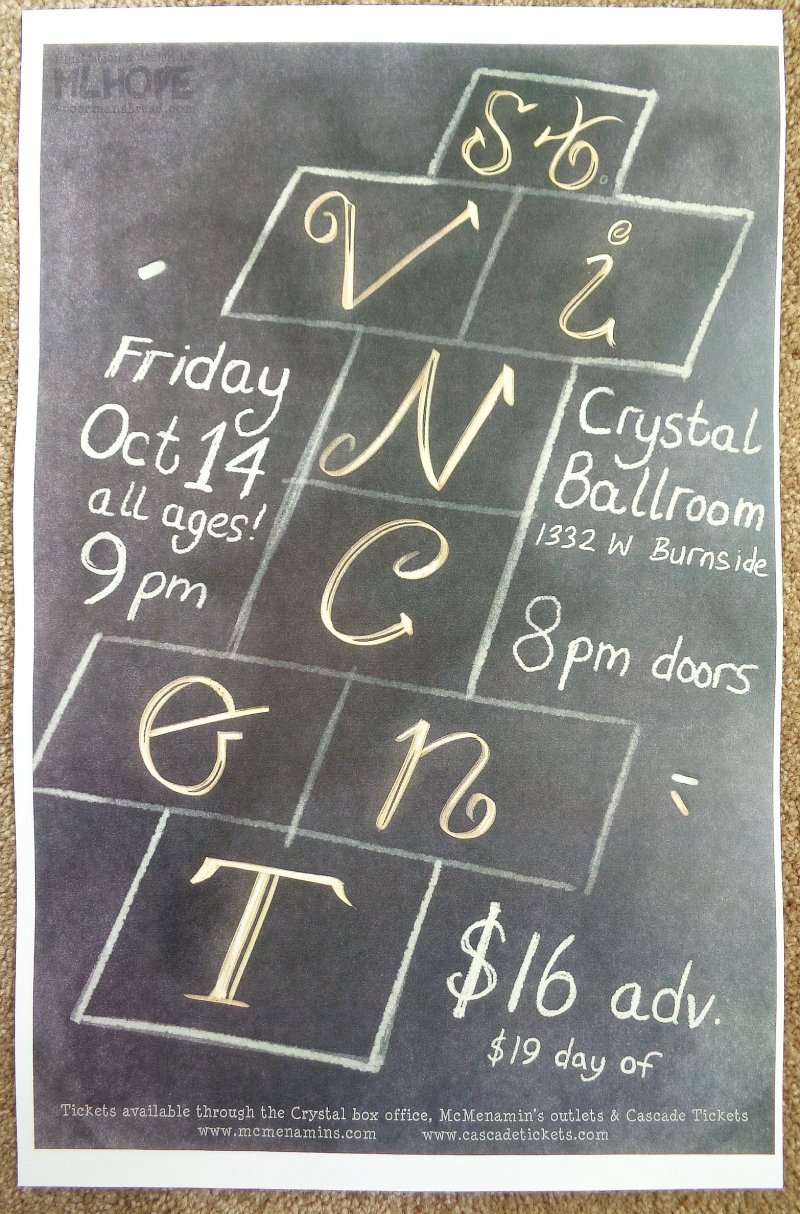 MLHOPE
St.
Vi
N
C
en
T
Friday
Oct 14
all ages!
9pm
Crystal
Ballroom
1332 W Burnside
8pm doors
$16 adv.
$19 day of
Tickets available through the Crystal box office, McMenamin's outlets & Cascade Tickets
www.mcmenamins.com www.cascadetickets.com